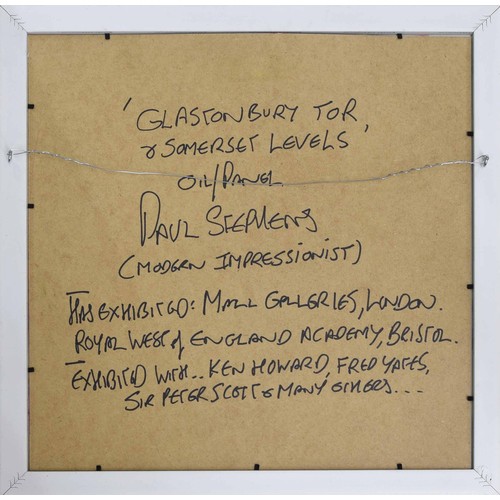 'GLASTONBURY TOR,
& SOMERSET LEVELS'
OIL/PANEL
PAUL STEPHENS
(MODERN IMPRESSIONIST)
HAS EXHIBITED: MALL GALLERIES, LONDON.
ROYAL WEST of ENGLAND ACADEMY, BRISTOL.
EXHIBITED WITH.. KEN HOWARD, FRED YATES,
SIR PETER SCOTT & MANY OTHERS...